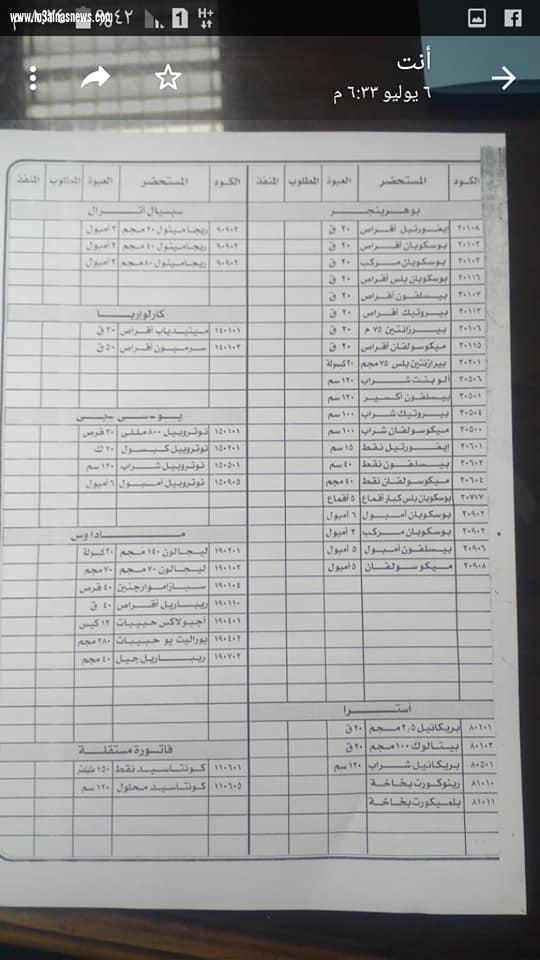 www.m3alnasnews.com
٩:٤٢
H+
1
أنت
٦ يوليو ٦:٣٣ م
الكود المستحضر العبوة المطلوب المنفذ
بوهرينجر
٢٠١٠٨ إيفورتيل أقراص ٢٠ ق
٢٠١٠٢ بوسكوبان أقراص ٢٠ ق
٢٠١٠٣ بوسكوبان مركب ٢٠ ق
٢٠١١٦ بوسكوبان بلس أقراص ٢٠ ق
٢٠١٠٧ بيسلفون أقراص ٢٠ ق
٢٠١١٣ بيروتيك أقراص ٢٠ ق
٢٠١٠٦ بيرزانتين ٧٥ م ٢٠ ق
٢٠١١٥ ميكوسولفان أقراص ٢٠ ق
٢٠٢٠١ بيرازنتين بلس ٧٥ مجم ٢٠ كبسولة
٢٠٥٠٦ ألوبنت شراب ١٢٠ سم
٢٠٥٠١ بيسلفون أكسير ١٢٠ سم
٢٠٥٠٤ بيروتيك شراب ١٠٠ سم
٢٠٥٠٠ ميكوسولفان شراب ١٠٠ سم
٢٠٦٠١ إيفورتيل نقط ١٥ سم
٢٠٦٠٢ بيسلفون نقط ٤٠ سم
٢٠٦٠٤ ميكوسولفان نقط ٤٠ مجم
٢٠٧١٧ بوسكوبان بلس كبار أقماع ٥ أقماع
٢٠٩٠٢ بوسكوبان أمبول ٦ أمبول
٢٠٩٠٣ بوسكوبان مركب ٣ أمبول
٢٠٩٠٦ بيسلفون أمبول ٥ أمبول
٢٠٩٠٨ ميكوسولفان ٥ أمبول
استرا
٨٠١٠١ بريكانيل ٢,٥ مجم ٢٠ ق
٨٠١٠٢ بيتالوك ١٠٠ مجم ٢٠ ق
٨٠٥٠١ بريكانيل شراب ١٢٠ سم
٨١٠١٠ رينوكورت بخاخة
٨١٠١١ بلميكورت بخاخة
الكود المستحضر العبوة المطلوب المنفذ
سيسيال أترال
٩٠٩٠٢ ريجامينول ٢٠ مجم ٣ أمبول
٩٠٩٠٢ ريجامينول ٤٠ مجم ٣ أمبول
٩٠٩٠٢ ريجامينول ٨٠ مجم ٣ أمبول
كارلواربا
١٤٠١٠١ مينيدياب أقراص ٣٠ ق
١٤٠١٠٢ سرميون أقراص ٥٠ ق
يو-سى-بى
١٥٠١٠١ نوتروبيل ٨٠٠ مللى ٢٠ قرص
١٥٠٢٠١ نوتروبيل كبسول ٢٠ ك
١٥٠٥٠١ نوتروبيل شراب ١٢٠ سم
١٥٠٩٠٥ نوتروبيل أمبول ٦ أمبول
ماداوس
١٩٠٢٠١ ليجالون ١٤٠ مجم ٢٠ كبولة
١٩٠١٠٢ ليجالون ٧٠ مجم ٧٠ مجم
١٩٠١٠٤ سبازماوارجنين ٤٠ قرص
١٩٠١١٠ ريباريل أقراص ٤٠ ق
١٩٠٤٠١ أجيولاكس حبيبات ١٢ كيس
١٩٠٤٠٢ يوراليت يو حبيبات ٢٨٠ مجم
١٩٠٧٠٢ ريباريل جيل ٤٠ مجم
فاتورة مستقلة
١١٠٦٠١ كونتاسيد نقط
١١٠٦٠٥ كونتاسيد محلول ١٢٠ سم